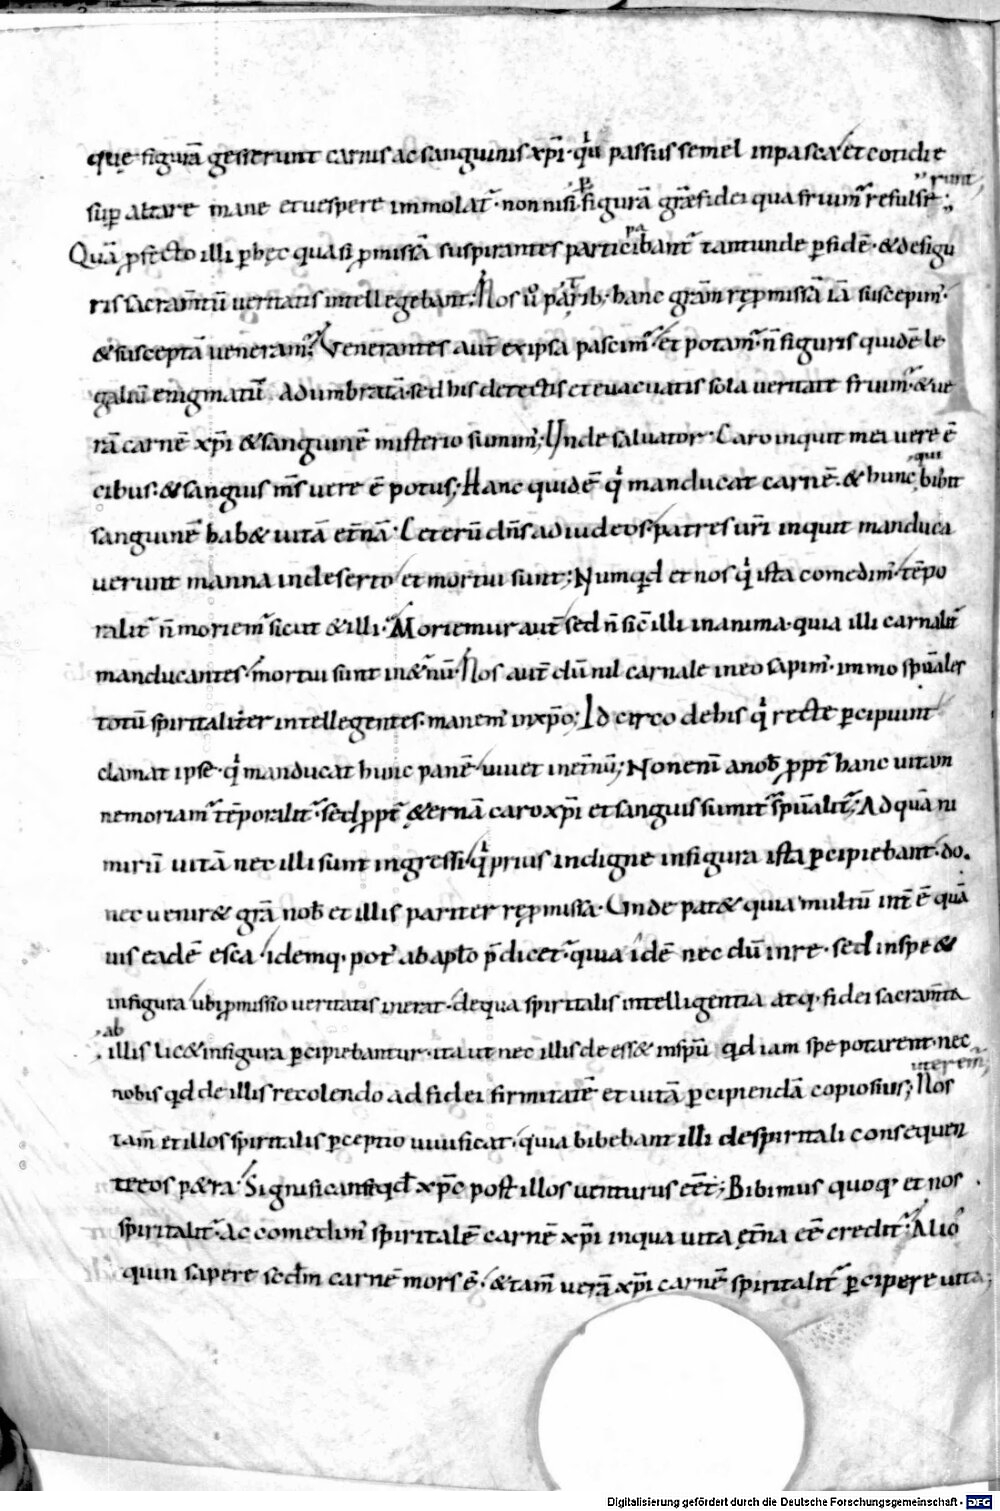 quę figurā gesserunt carnis ac sanguinis xp̄i. qui passus semel in pascha et cotidie
sup altare mane et uespere immolat̄. non nisi figurā grāe fidei qua fruimur refulserunt;
Quā ꝓfecto illi ꝑ hęc quasi ꝓmissā suspirantes participabant̄ tantunde ꝑ fidē. & de figu
ris sacram̄tū ueritatis intellegebant; Nos u̅ parit̄ ib; hanc grām reꝓmissā iā suscepim̄.
& susceptā ueneram̄; Venerantes aut̄ ex ipsa pascim̄ et potam̄. n̄ figuris quidē le
galiū enigmatū adumbratā. sed his detectis et euacuatis sola ueritate fruim̄. & ue
rā carnē xp̄i & sanguinē misterio sumim̄; Unde saluator. Caro inquit mea uere ē
cibus. & sanguis m̄s uere ē potus; Hanc quidē qi manducat carnē. & hunc qui bibit
sanguinē hab& uitā et̄nā. Ceterū dn̄s ad iudeos. patres ur̄i inquit manduca
uerunt manna in deserto et mortui sunt; Numqd et nos qi ista comedim̄. tēpo
ralit̄ n̄ moriem̄ sicut & illi. Moriemur aut̄ sed n̄ sic illi in anima. quia illi carnalit̄
manducantes. mortui sunt in &̄nū. Nos aut̄ dū nil carnale in eo sapim̄. immo sp̄uales
totū spiritaliter intellegentes. manem̄ in xp̄o; Idcirco de his qi recte ꝑcipiunt
clamat ipse. qi manducat hunc panē uiuet in et̄nū; Non enī a nob̄ ꝓpt̄ hanc uitam
ne moriam̄ tēporalit̄. sed ꝓpt̄ &ernā caro xp̄i et sanguis sumit̄ sp̄ualit̄; Ad quā ni
mirū uitā nec illi sunt ingressi qi prius indigne in figura ista ꝑcipiebant. do.
nec uenir& grā nob̄ et illis pariter reꝓmissa. Unde pat& quia multū int̄ ē quā
uis eadē esca idemq. pot̄ ab aplo p̄dicet̄. quia idē nec dū in re. sed in spe &
in figura ubi ꝓmissio ueritatis inerat. de qua spiritalis intelligentia atq. fidei sacram̄ta
ab illis lic& in figura ꝑcipiebantur. ita ut nec illis deess& in sp̄u qd iam spe potarent. nec
nobis qd de illis recolendo ad fidei firmitatē et uitā ꝑcipiendā copiosius uterem̄; Nos
tam̄ et illos spiritalis ꝑceptio uiuificat. quia bibebant illi de spiritali consequen
te eos p&ra. Significans qd xp̄c post illos uenturus eēt; Bibimus quoq. et nos
spiritalit̄. ac comedim̄ spiritalē carnē xp̄i in qua uita ęt̄na eē credit̄. Alio
quin sapere sed̄m carnē mors ē. & tam̄ uerā xp̄i carnē spiritalit̄ ꝑcipere uita;
Digitalisierung gefördert durch die Deutsche Forschungsgemeinschaft - DFG